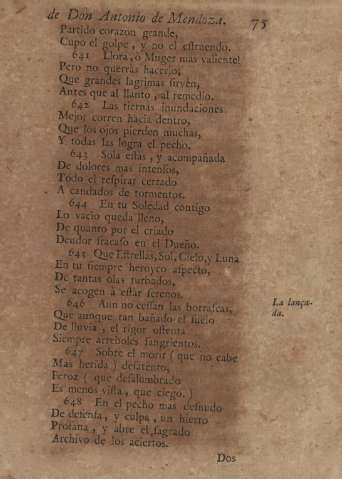 de Don Antonio de Mendoza. 75
Partido corazon grande,
Cupo el golpe, y no el estruendo.
641 Llora, ò Muger mas valiente!
Pero no querràs hacerlo;
Que grandes lagrimas sirven,
Antes que al llanto, al remedio.
642 Las tiernas inundaciones
Mejor corren hàcia dentro,
Que los ojos pierden muchas,
Y todas las logra el pecho.
643 Sola estàs, y acompañada
De dolores mas intensos,
Todo el respirar cerrado
A candados de tormentos.
644 En tu Soledad contigo
Lo vacio queda lleno,
De quanto por el criado
Deudor fracaso en el Dueño.
645 Que Estrellas, Sol, Cielo, y Luna
En tu siempre heroyco aspecto,
De tantas olas turbados,
Se acogen à estàr serenos.
646 Aun no cessan las borrascas,
Que aunque tan bañado el suelo
De lluvia, el rigor ostenta
Siempre arreboles sangrientos.
La lança-
da.
647 Sobre el morir (que no cabe
Mas herida) desatento,
Feroz (que desalumbrado
Es menos vista, que ciego.)
648 En el pecho mas desnudo
De defensa, y culpa, un hierro
Profana, y abre el sagrado
Archivo de los aciertos.
Dos